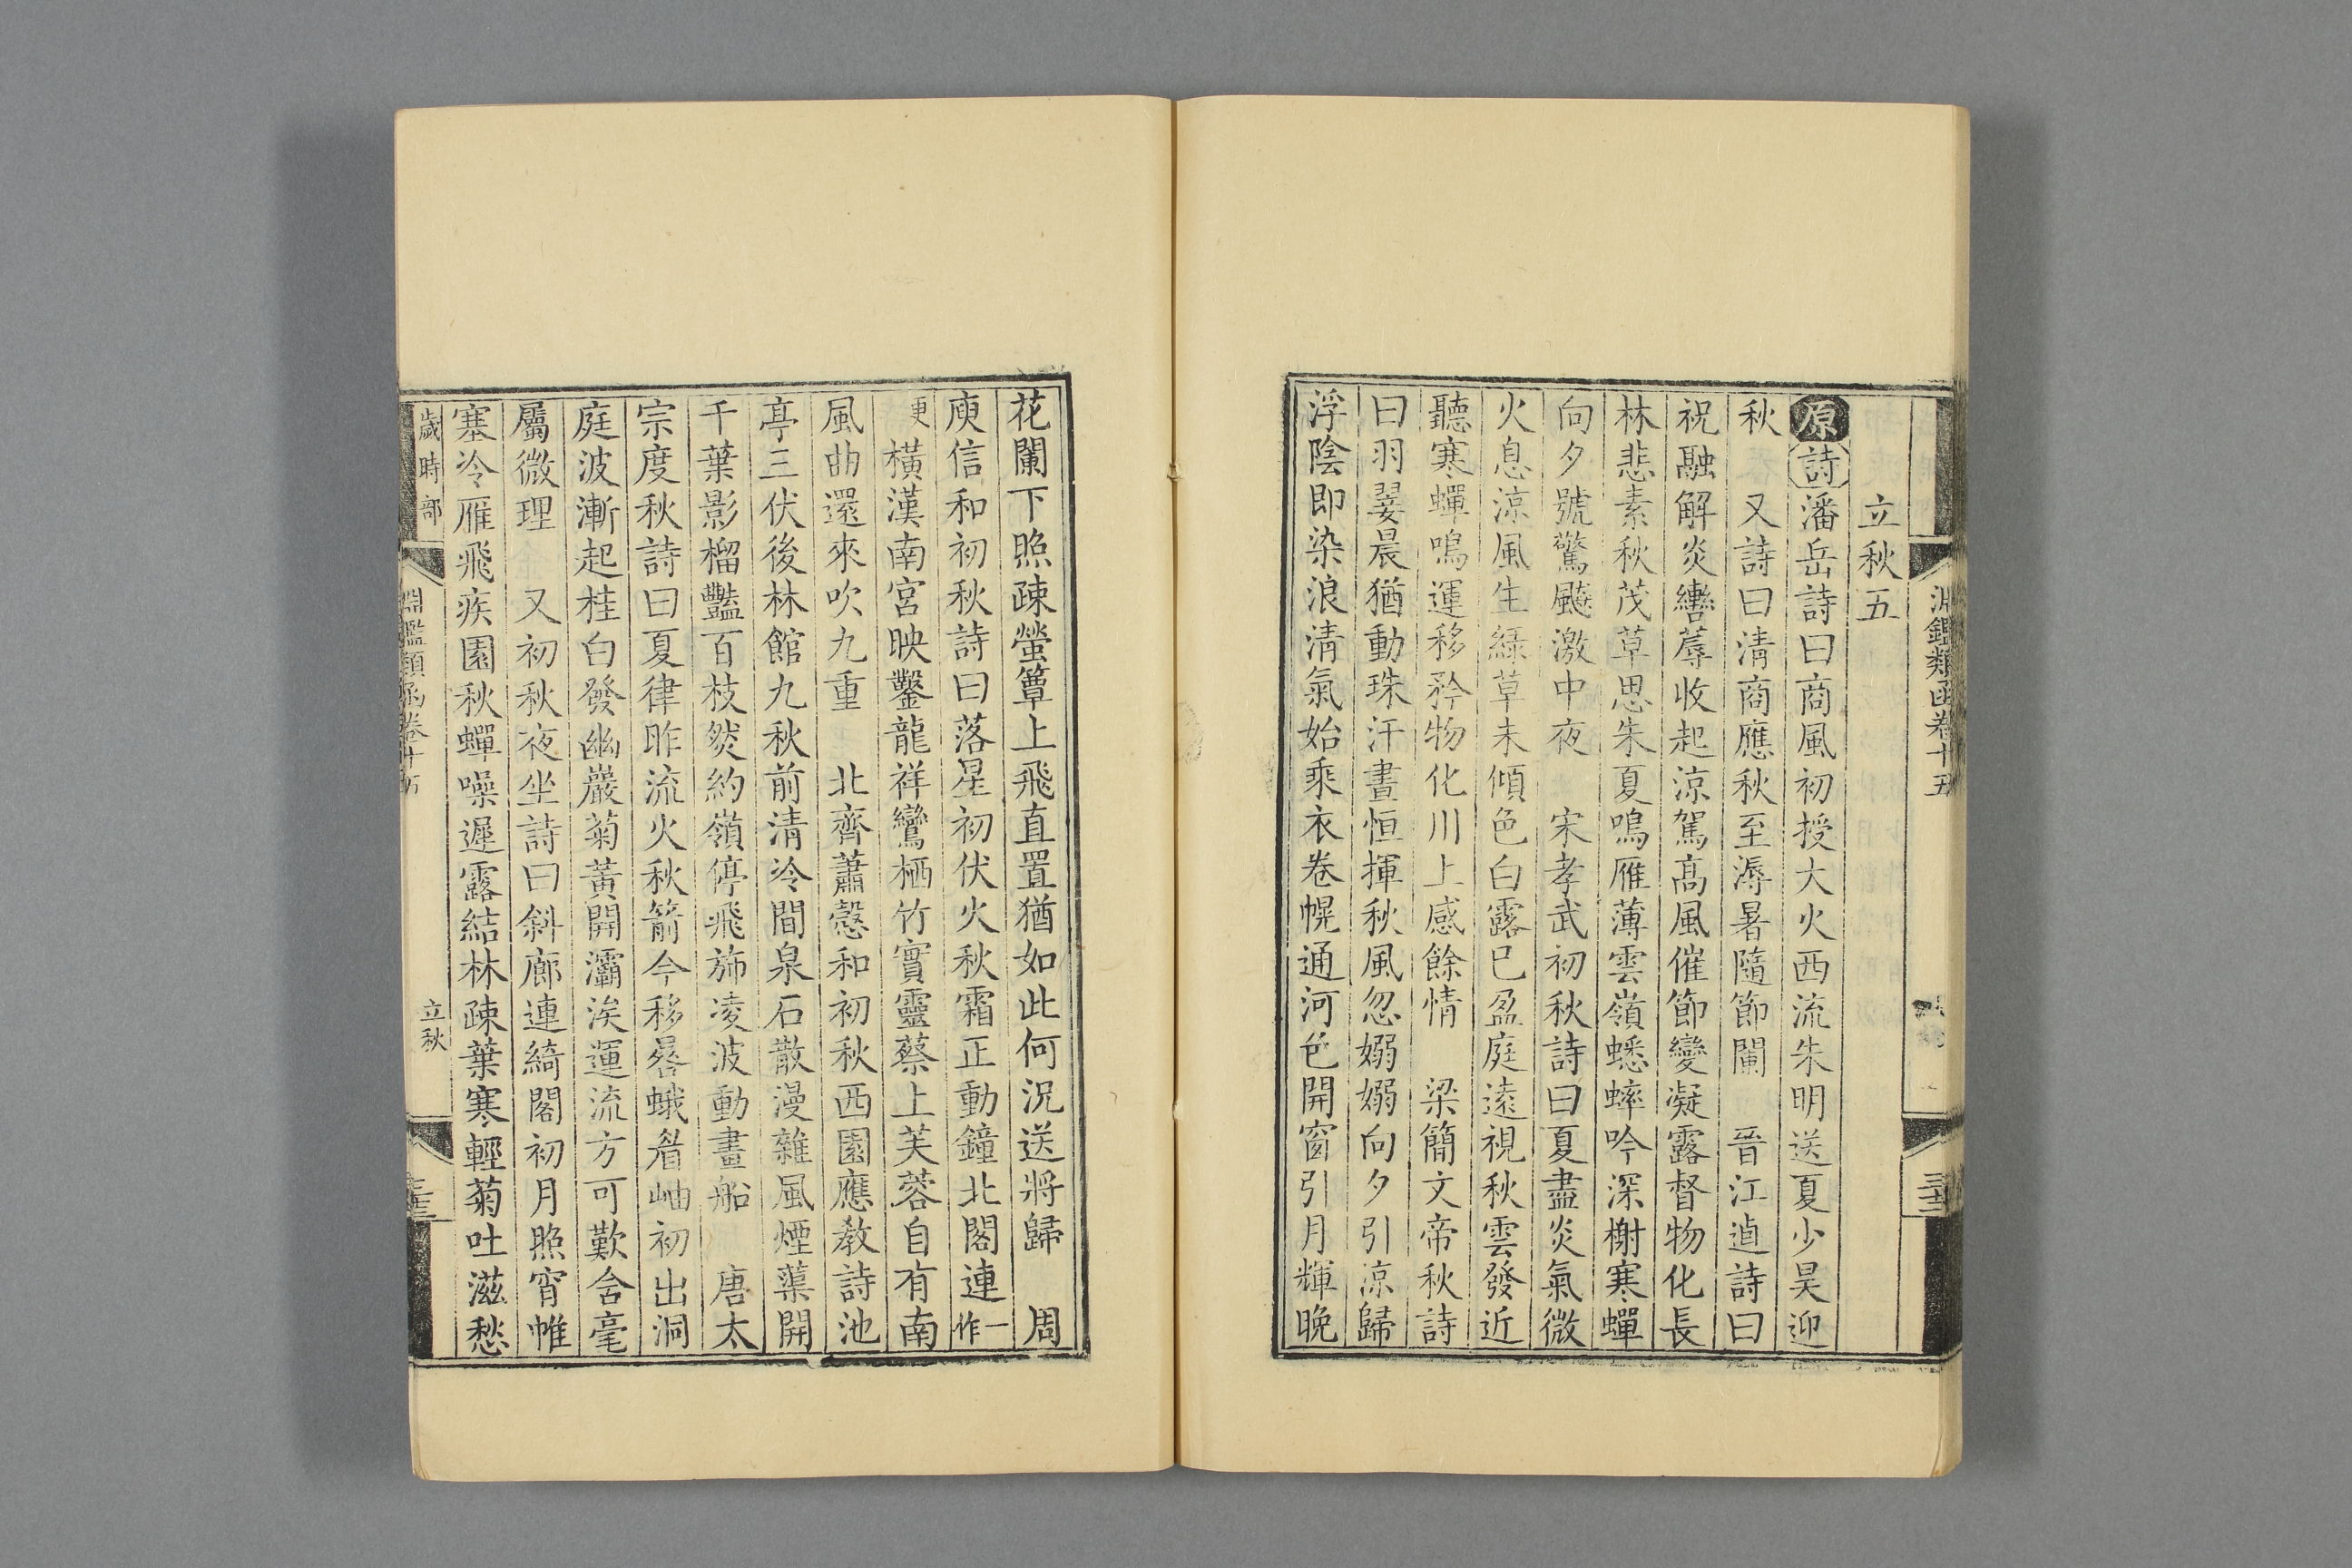 淵鑑類函卷十五
立秋五
原詩潘岳詩曰商風初授大火西流朱明送夏少昊迎
秋 又詩曰清商應秋至溽暑隨節闌 晉江逌詩曰
祝融解炎轡蓐收起涼駕高風催節變凝露督物化長
林悲素秋茂草思朱夏鳴雁薄雲嶺蟋蟀吟深榭寒蟬
向夕號驚飈激中夜 宋孝武初秋詩曰夏盡炎氣微
火息涼風生綠草未傾色白露已盈庭遠視秋雲發近
聽寒蟬鳴運移矜物化川上感餘情 梁簡文帝秋詩
曰羽翣晨猶動珠汗晝恒揮秋風忽嫋嫋向夕引涼歸
浮陰即染浪清氣始乘衣卷幌通河色開窗引月輝晚
花闌下照疎螢簟上飛直置猶如此何況送將歸 周
庾信和初秋詩曰落星初伏火秋霜正動鐘北閣連一作
便橫漢南宮映鑿龍祥鸞栖竹實靈蔡上芙蓉自有南
風曲還來吹九重 北齊蕭愨和初秋西園應教詩池
亭三伏後林館九秋前清泠間泉石散漫雜風煙蕖開
千葉影榴豔百枝然約嶺停飛斾凌波動畫船 唐太
宗度秋詩曰夏律昨流火秋箭今移晷峨眉岫初出洞
庭波漸起桂白發幽巖菊黃開灞涘運流方可歎含毫
屬微理 又初秋夜坐詩曰斜廊連綺閣初月照宵帷
塞冷雁飛疾園秋蟬噪遲露結林疎葉寒輕菊吐滋愁
歲時部
淵鑑類函卷十五
立秋